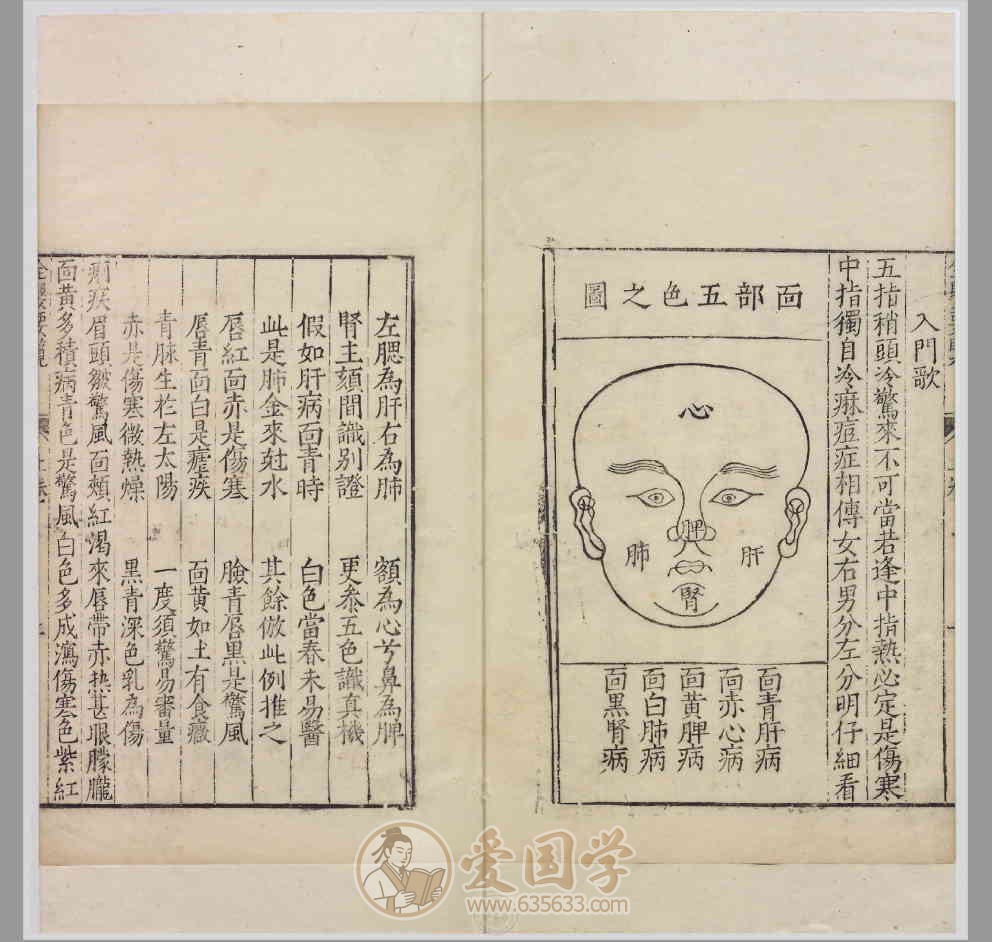 入門歌
五指稍頭冷驚來不可當若逢中指熱必定是傷寒
中指獨自冷麻痘症相傳女右男分左分明仔細看
面部五色之圖
心
肺
脾
肝
腎
面青肝病
面赤心病
面黃脾病
面白肺病
面黑腎病
左腮為肝右為肺 額為心兮鼻為脾
腎主頦間識別證 更叅五色識真機
假如肝病面青時 白色當春未易醫
此是肺金來尅水 其餘倣此例推之
唇紅面赤是傷寒 臉青唇黑是驚風
唇青面白是瘧疾 面黃如土有食癥
青脉生於左太陽 一度須驚易審量
赤是傷寒微熱燥 黑青深色乳為傷
痢疾眉頭皺驚風面頰紅渴來唇帶赤热甚眼朦朧
面黃多積病青色是驚風白色多成瀉傷寒色紫紅
爱国学
www.635633.com